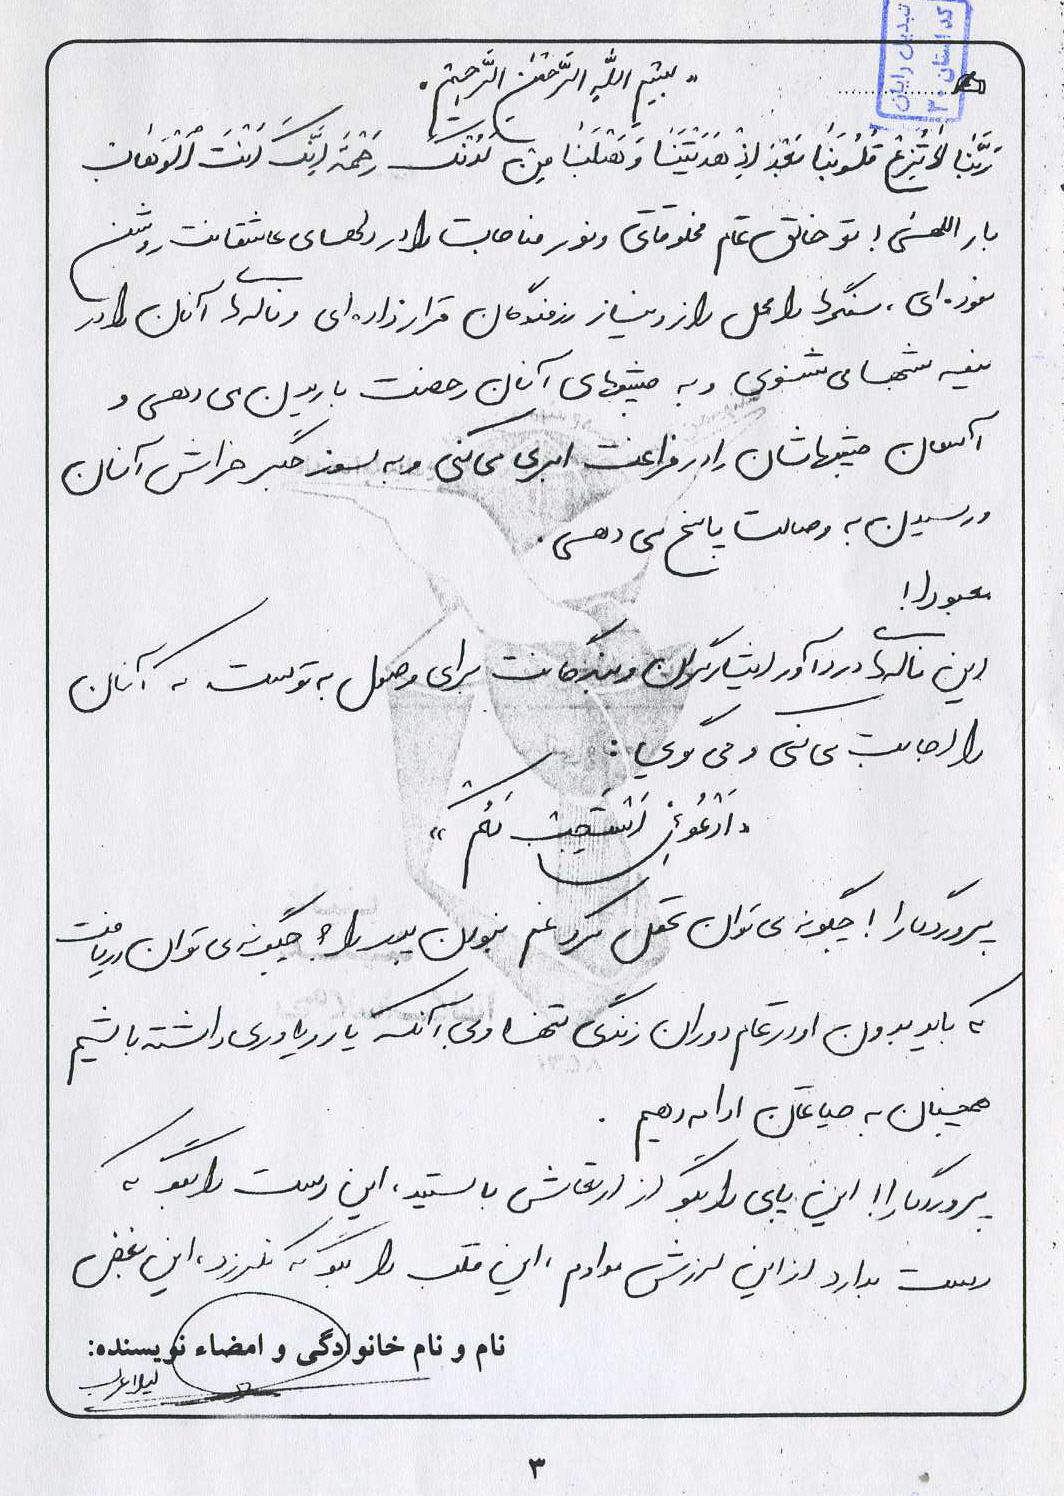 تبدیل رایان
کد استان ۳۰
« بِسْمِ اللَّهِ الرَّحْمٰنِ الرَّحِیْمِ »
رَبَّنٰا لٰا تُزِغْ قُلُوبَنٰا بَعْدَ اِذْ هَدَیْتَنٰا وَ هَبْ لَنٰا مِنْ لَدُنْکَ رَحْمَةً اِنَّکَ اَنْتَ الْوَهّٰاب
بار الهی! تو خالق تمام مخلوقاتی و نور مناجات را در دلهای عاشقانت روشن
نموده‌ای، سنگرها را محل راز و نیاز رزمندگان قرار داده‌ای و ناله‌های آنان را در
نیمه شبها می شنوی و به چشمهای آنان رخصت باریدن می دهی و
آسمان چشمهاشان را در فراغت ابری می کنی و به سوز جگر خراش آنان
در رسیدن به وصالت پاسخ می دهی.
معبودا!
این ناله‌های درد آور ایثارگران و بندگانت برای وصول به توست که آنان
را اجابت می کنی و می گویی:
«اُدْعُونی اَسْتَجِبْ لَکُم»
پروردگارا! چگونه می توان تحمل کرد غم نبودن پدر را؟ چگونه می توان دریافت
که باید بدون او در تمام دوران زندگی تنها و بی آنکه یار و یاوری داشته باشیم
همچنان به حیاتمان ادامه دهیم.
پروردگارا! این پای را بگو از ارتعاش بایستد، این دست را بگو که
دست بدارد از این لرزش مداوم، این قلب را بگو که نلرزد، این بغض
نام و نام خانوادگی و امضاء نویسنده:
لیلا عرب
۳